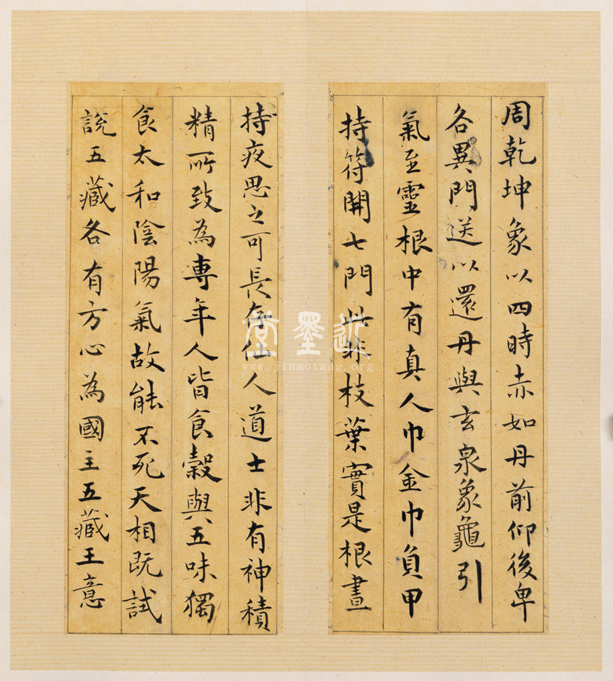 周乾坤象以四時赤如丹前仰後卑
各異門送以還丹與玄泉象龜引
氣至靈根中有真人巾金巾負甲
持符開七門此非枝葉實是根晝
持夜思之可長存仙人道士非有神積
精所致為專年人皆食穀與五味獨
食太和陰陽氣故能不死天相既試
說五藏各有方心為國主五藏王意
近墨堂
www.jinmotang.org